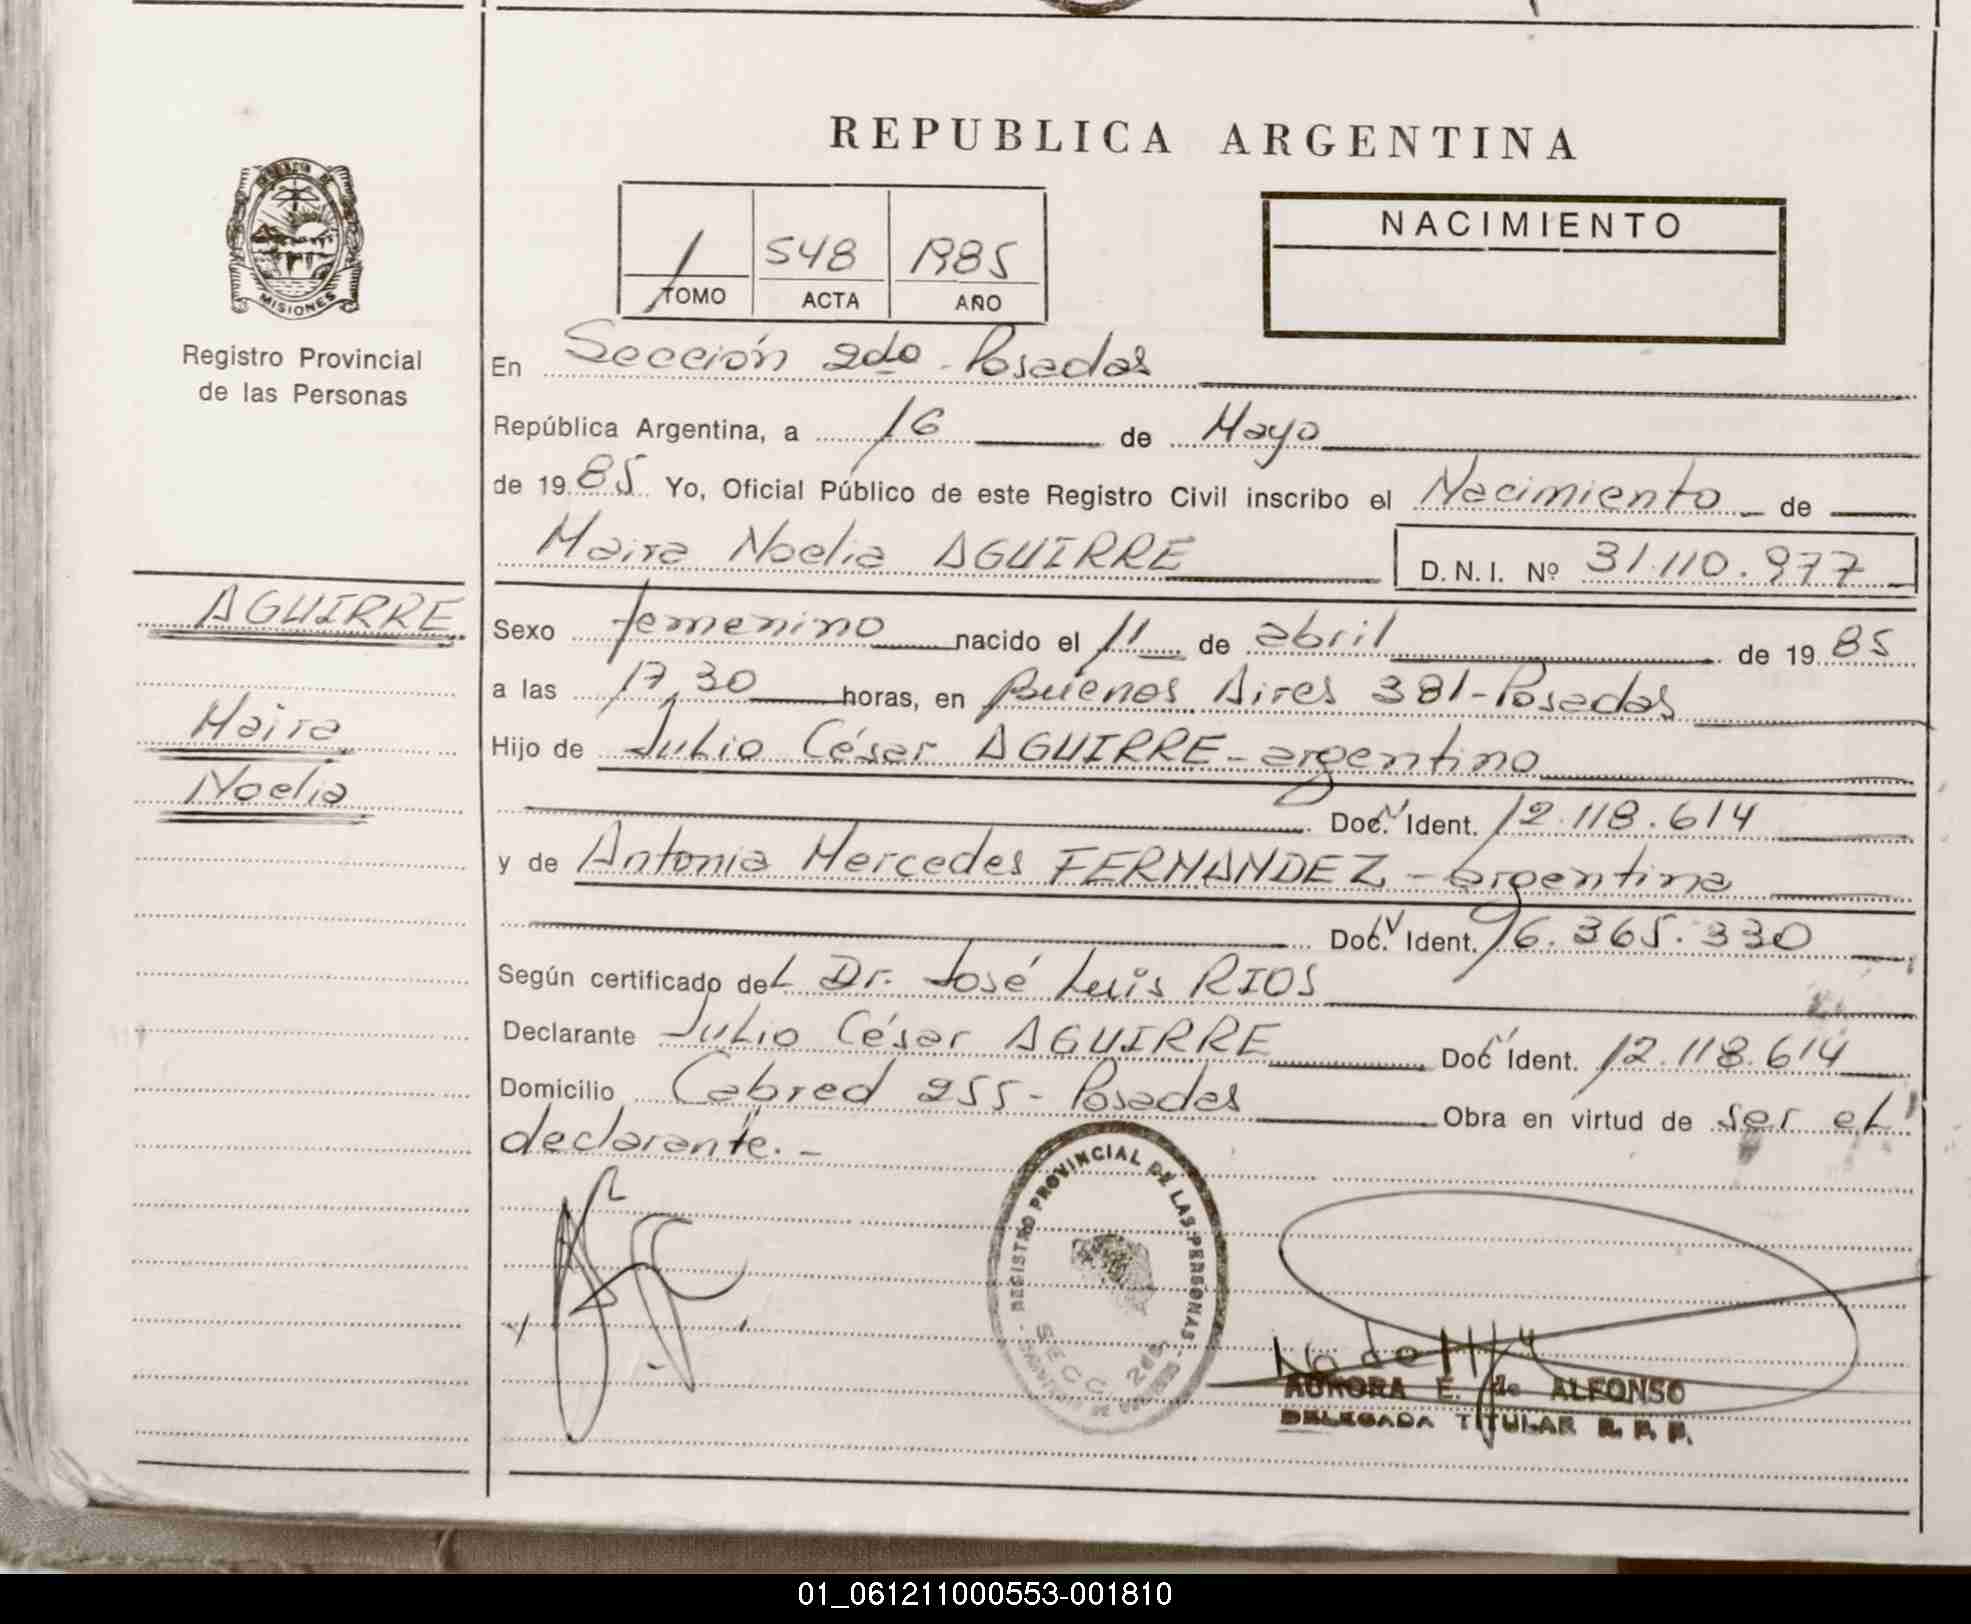 REPUBLICA ARGENTINA
MISIONES
Registro Provincial
de las Personas
1 548 1985
TOMO ACTA AÑO
NACIMIENTO
En Sección 2do - Posadas
República Argentina, a 16 de Mayo
de 1985 Yo, Oficial Público de este Registro Civil inscribo el Nacimiento de
Maira Noelia AGUIRRE D.N.I. Nº 31.110.977
AGUIRRE
Maira
Noelia
Sexo femenino nacido el 11 de abril de 1985
a las 17,30 horas, en Buenos Aires 381-Posadas
Hijo de Julio César AGUIRRE - argentino
Doc. Ident. 12.118.614
y de Antonia Mercedes FERNANDEZ - argentina
Doc. Ident. 16.365.330
Según certificado del Dr. José Luis RIOS
Declarante Julio César AGUIRRE Doc Ident. 12.118.614
Domicilio Cabred 255 - Posadas Obra en virtud de ser el
declarante. -
REGISTRO PROVINCIAL DE LAS PERSONAS
SECC. 2da
AURORA E. de ALFONSO
DELEGADA TITULAR R. P. P.
01_061211000553-001810